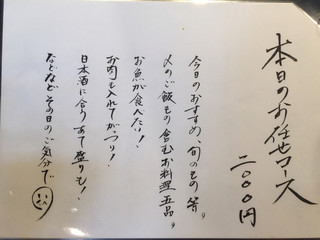 本日のお任せコース
二〇〇〇円
今日のおすすめ、旬のもの等、
〆のご飯もの含むお料理五品。
お魚が食べたい!
お肉も入れてがっつり!
日本酒に合うあて盛りも!
などなどその日のご気分で